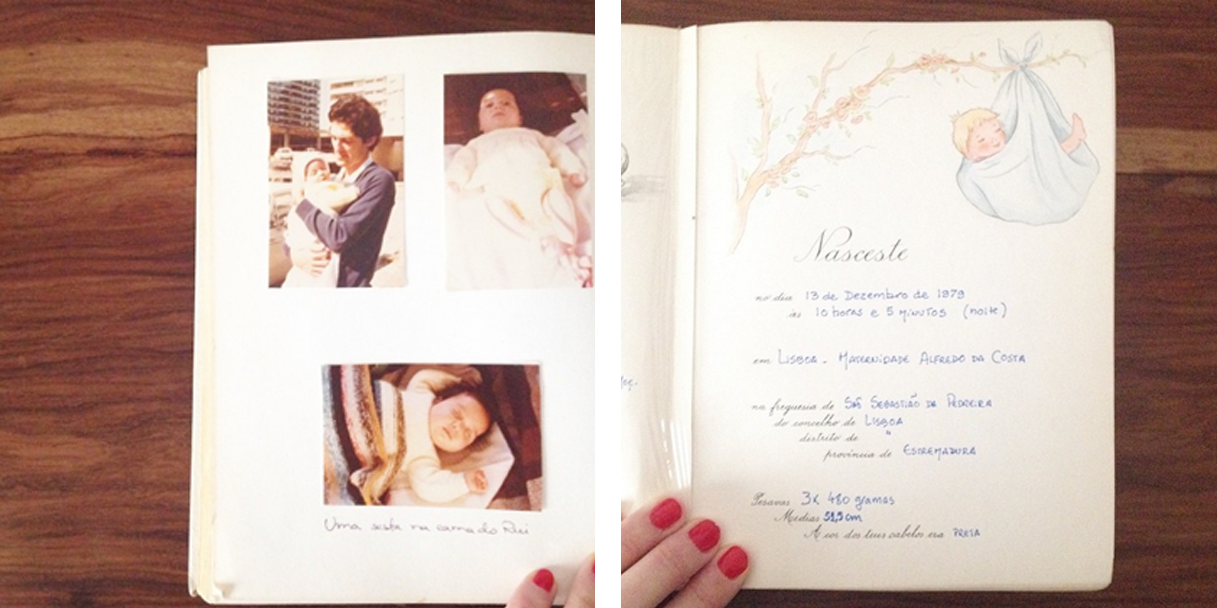 Uma sesta na cama do Rui
Nasceste
no dia 13 de Dezembro de 1979
às 10 horas e 5 minutos (noite)
em Lisboa - Maternidade Alfredo da Costa
na freguesia de São Sebastião da Pedreira
do concelho de Lisboa
distrito de "
província de Estremadura
Pesavas 3K 480 gramas
Medias 51,5 cm
A cor dos teus cabelos era preta